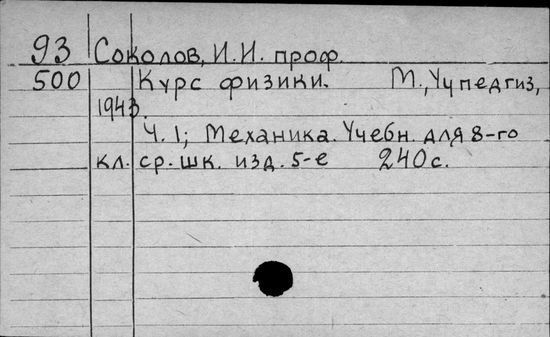 93 Соколов, И.И. проф.
500 Курс физики. М., Учпедгиз,
1943.
Ч. 1; Механика. Учебн. для 8-го
кл. ср. шк. изд. 5-е 240 с.